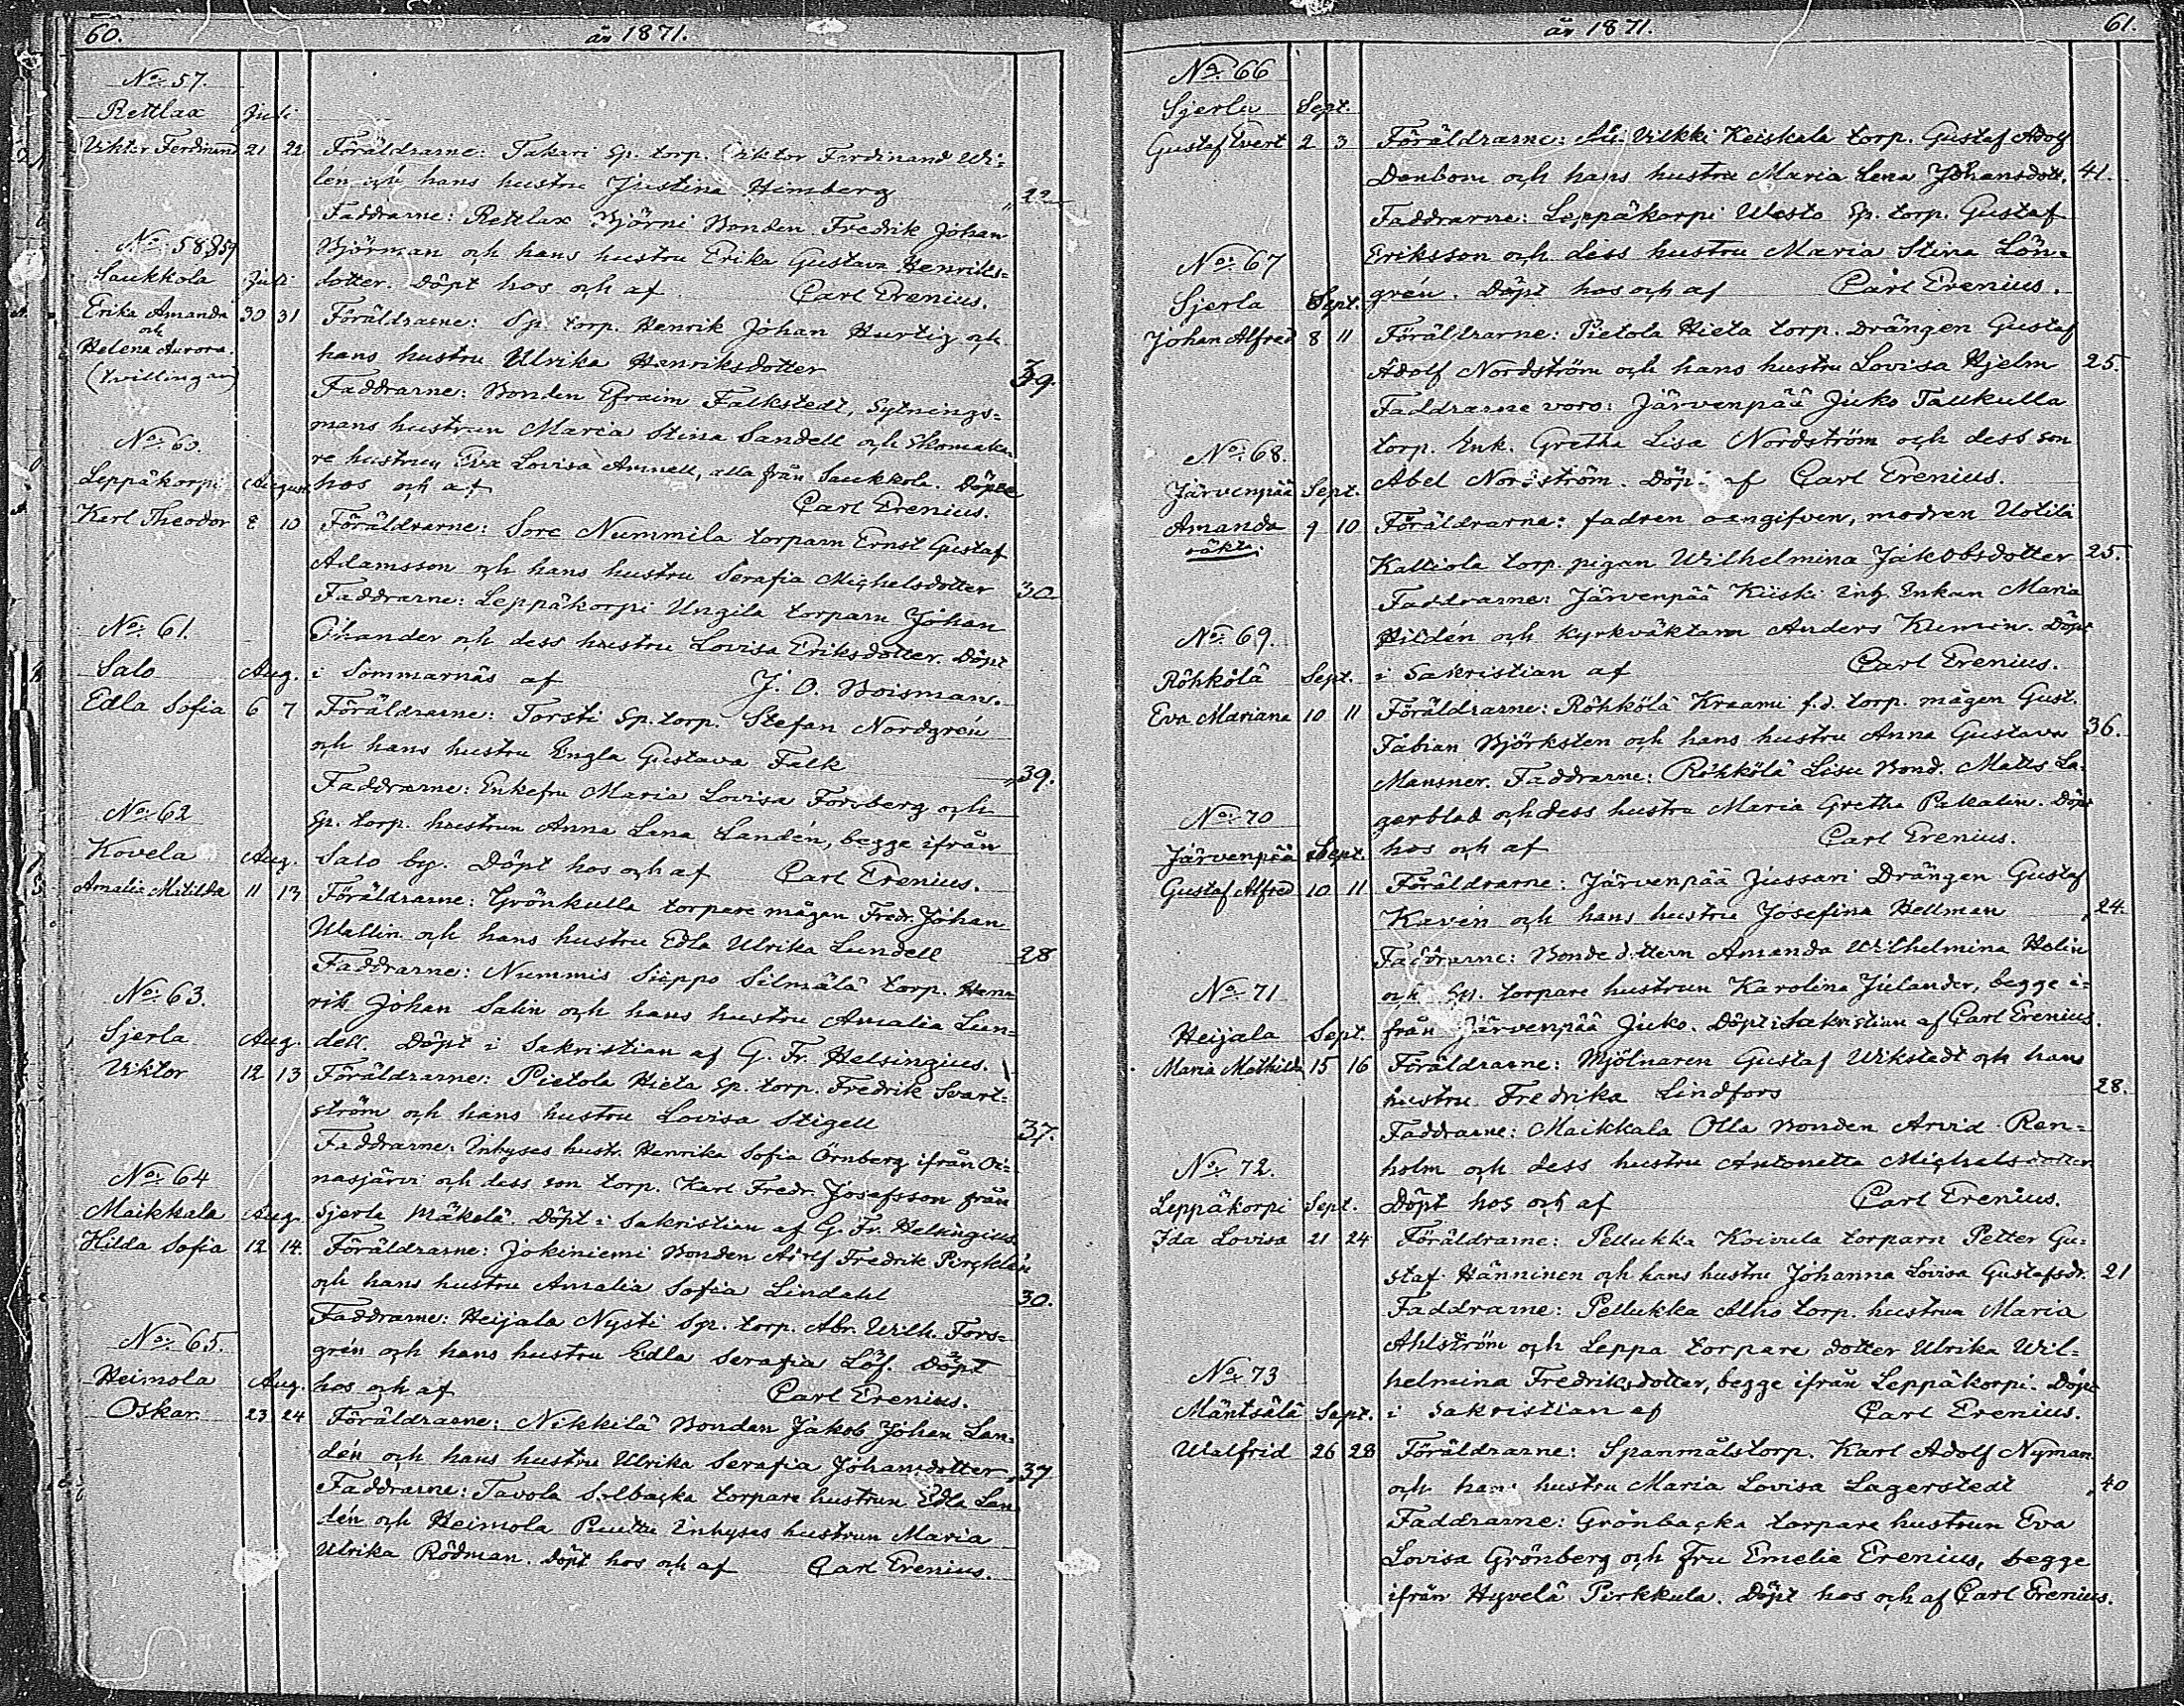 60.
år 1871.
No. 57.
Rettlax Juli
Viktor Ferdinand 21 22 Föräldrarne: Takari Sp. torp. Viktor Ferdinand Wi-
len och hans hustru Justina Himberg 22
Faddrarne: Rettlax Björni Bonden Fredrik Johan
Björman och hans hustru Erika Gustava Henriks-
dotter. Döpt hos och af Carl Erenius.
No. 58 & 59
Saukkola Juli
Erika Amanda 30 31 Föräldrarne: Sp. torp. Henrik Johan Hurtig och
och
Helena Aurora. hans hustru Ulrika Henriksdotter 39.
(tvillingar) Faddrarne: Bonden Efraim Falkstedt, Sytnings-
mans hustrun Maria Stina Sandell och Skomaka-
re hustrun Eva Lovisa Amnell, alla från Saukkola. Döpte
hos och af Carl Erenius.
No. 60.
Leppäkorpi August
Karl Theodor 8 10 Föräldrarne: Sore Nummila torparn Ernst Gustaf
Adamsson och hans hustru Serafia Michelsdotter 30
Faddrarne: Leppäkorpi Unzila torparn Johan
Öhander och dess hustru Lovisa Eriksdotter. Döpt
i Sommarnäs af J. O. Boisman.
No. 61.
Salo Aug.
Edla Sofia 6 7 Föräldrarne: Torsti Sp. torp. Stefan Nordgrén
och hans hustru Engla Gustava Falk 39.
Faddrarne: Enkefru Maria Lovisa Forsberg och
Sp. torp. hustrun Anna Lena Landén, begge ifrån
Salo by. Döpt hos och af Carl Erenius.
No. 62
Kovela Aug.
Amalia Matilda 11 13 Föräldrarne: Grönkulla torpare mågen Fredr. Johan
Wallin och hans hustru Edla Ulrika Lundell 28
Faddrarne: Nummis Sieppo Silmälä torp. Hen-
rik Johan Salin och hans hustru Amalia Lun-
dell. Döpt i Sakristian af G. Fr. Helsingius.
No. 63.
Sjerla Aug.
Viktor 12 13 Föräldrarne: Pietola Hieta Sp. torp. Fredrik Svart-
ström och hans hustru Lovisa Stigell 37.
Faddrarne: Inhyses hustr. Henrika Sofia Örnberg ifrån Oi-
nasjärvi och dess son torp. Karl Fredr. Josefsson från
Sjerla Mäkelä. Döpt i Sakristian af G. Fr. Helsingius.
No. 64
Maikkala Aug.
Hilda Sofia 12 14. Föräldrarne: Jokiniemi Bonden Adolf Fredrik Pirchlén
och hans hustru Amalia Sofia Lindahl 30.
Faddrarne: Heijala Nysti Sp. torp. Abr. Wilh. Fors-
grén och hans hustru Edla Serafia Löf. Döpt
hos och af Carl Erenius.
No. 65.
Heimola Aug.
Oskar. 23 24 Föräldrarne: Nikkilä Bonden Jakob Johan Lan-
dén och hans hustru Ulrika Serafia Johansdotter 37
Faddrarne: Tavola Solbacka torpare hustrun Edla Lan-
dén och Heimola Puuttu Inhyses hustrun Maria
Ulrika Rödman. Döpt hos och af Carl Erenius.
år 1871.
61.
No. 66
Sjerla Sept.
Gustaf Evert 2 3 Föräldrarne: Vilkki Keiskala torp. Gustaf Adolf
Denbom och hans hustru Maria Lena Johansdott. 41.
Faddrarne: Leppäkorpi Uusto Sp. torp. Gustaf
Eriksson och dess hustru Maria Stina Lön-
grén. Döpt hos och af Carl Erenius.
No. 67
Sjerla Sept.
Johan Alfred 8 11 Föräldrarne: Pietola Hieta torp. Drängen Gustaf
Adolf Nordström och hans hustru Lovisa Hjelm 25.
Faddrarne voro: Järvenpää Juko Taukulla
torp. Enk. Gretha Lisa Nordström och dess son
Abel Nordström. Döpt af Carl Erenius.
No. 68.
Järvenpää Sept.
Amanda 9 10 Föräldrarne: fadren oangifven, modren Uotila
oäkta. Kalliola torp. pigan Wilhelmina Jakobsdotter 25.
Faddrarne: Järvenpää Kiiski Inh. Enkan Maria
Hildén och Kyrkväktarn Anders Kumin. Döpt
i Sakristian af Carl Erenius.
No. 69.
Röhkölä Sept.
Eva Mariana 10 11 Föräldrarne: Röhkölä Kraami f.d. torp. mågen Gust.
Fabian Björksten och hans hustru Anna Gustava 36.
Mansner. Faddrarne: Röhkölä Lisu Bond. Matts La-
gerblad och dess hustru Maria Gretha Pakalin. Döpt
hos och af Carl Erenius.
No. 70
Järvenpää Sept.
Gustaf Alfred 10 11 Föräldrarne: Järvenpää Jussari Drängen Gustaf
Kavén och hans hustru Josefina Hellman 24.
Faddrarne: Bondedottern Amanda Wilhelmina Holin
och Sp. torpare hustrun Karolina Julander, begge i-
från Järvenpää Juko. Döpt i Sakristian af Carl Erenius.
No. 71
Heijala Sept.
Maria Mathilda 15 16 Föräldrarne: Mjölnaren Gustaf Wikstedt och hans
hustru Fredrika Lindfors 28.
Faddrarne: Maikkala Olla Bonden Arvid Ren-
holm och dess hustru Antonetta Michelsdotter
Döpt hos och af Carl Erenius.
No. 72.
Leppäkorpi Sept.
Ida Lovisa 21 24 Föräldrarne: Pellukka Koivula torparn Petter Gu-
staf Hänninen och hans hustru Johanna Lovisa Gustafsdr. 21
Faddrarne: Pellukka Alho torp. hustrun Maria
Ahlström och Leppa torpare dotter Ulrika Wil-
helmina Fredriksdotter, begge ifrån Leppäkorpi. Döpt
i Sakristian af Carl Erenius.
No. 73
Mäntsälä Sept.
Walfrid 26 28 Föräldrarne: Spanmålstorp. Karl Adolf Nyman
och hans hustru Maria Lovisa Lagerstedt 40
Faddrarne: Grönbacka torpare hustrun Eva
Lovisa Grönberg och Fru Emelie Erenius, begge
ifrån Hyvelä Pirkkula. Döpt hos och af Carl Erenius.